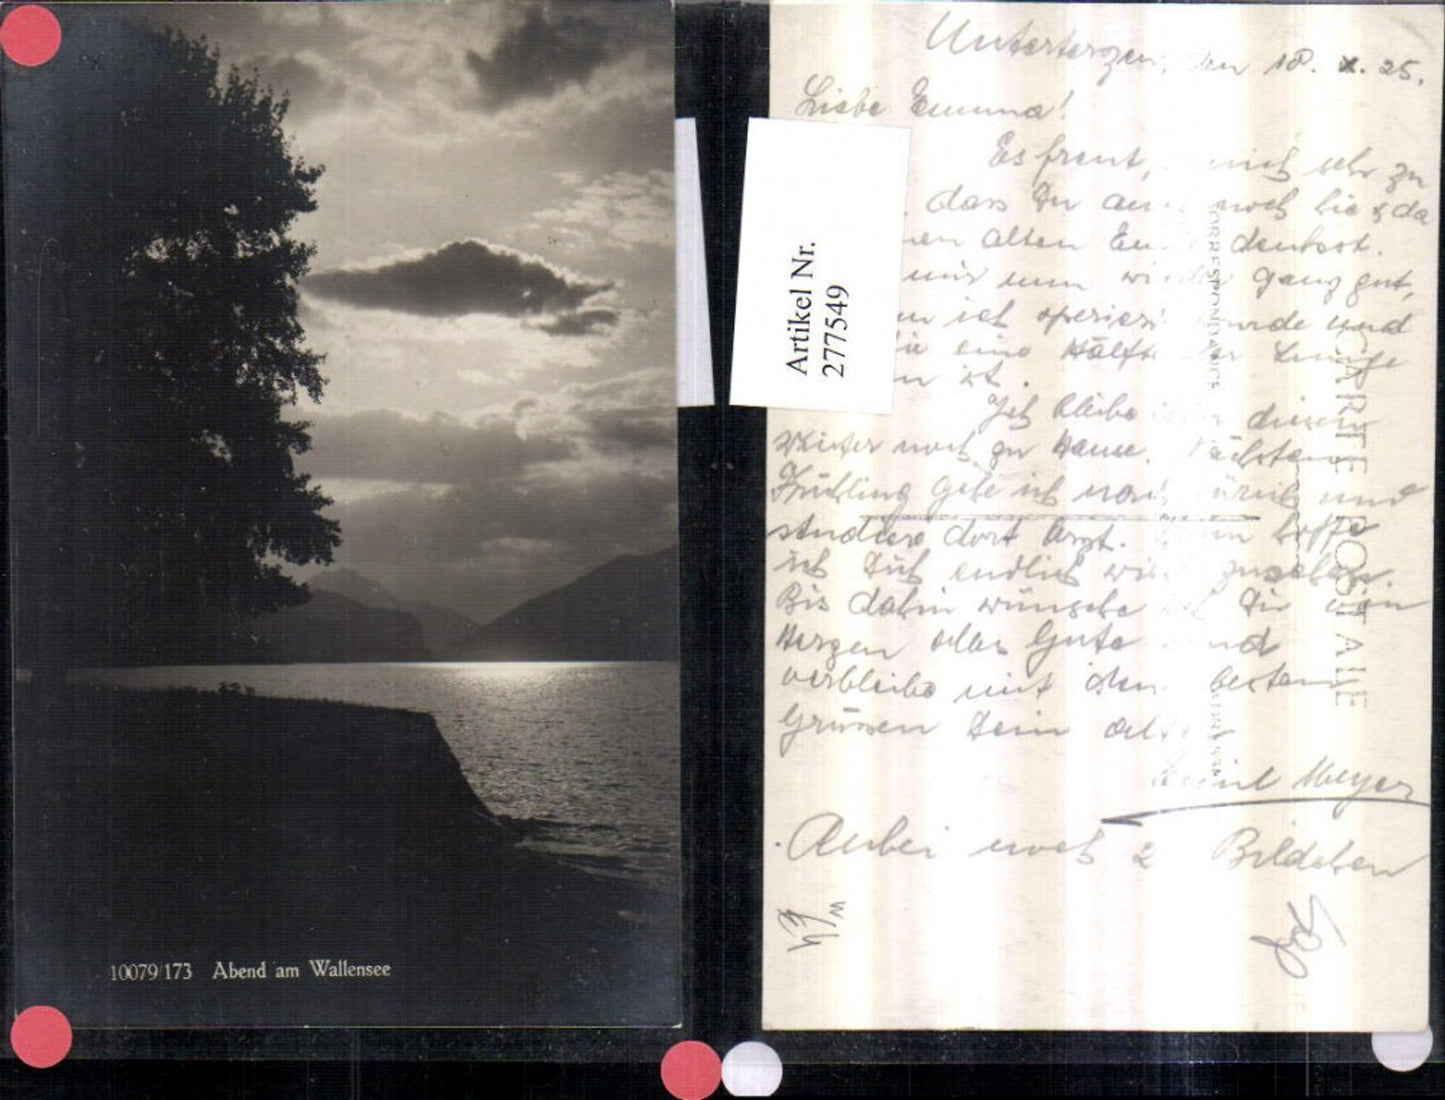 10079/173 Abend am Wallensee
Artikel Nr.
277549
CARTE POSTALE
CORRESPONDANCE
Unterterzen, den 18. X. 25.
Liebe Emma!
Es freut, mich sehr zu
dass Du au noch hie & da
nen alten En denkst.
mir nun wieder ganz gut,
ich operiert wurde und
die eine Hälfte der Lunge
ist.
Ich bleibe diesen
Winter noch zu Hause. Nächsten
Frühling gehe ich nach und
studiere dort Arzt. Dann hoffe
ich Dich endlich wieder zusehen.
Bis dahin wünsche ich Dir von
Herzen alles Gute und
verbleibe mit den besten
Grüssen Dein alter
Emil Meyer
Anbei noch 2 Bildchen